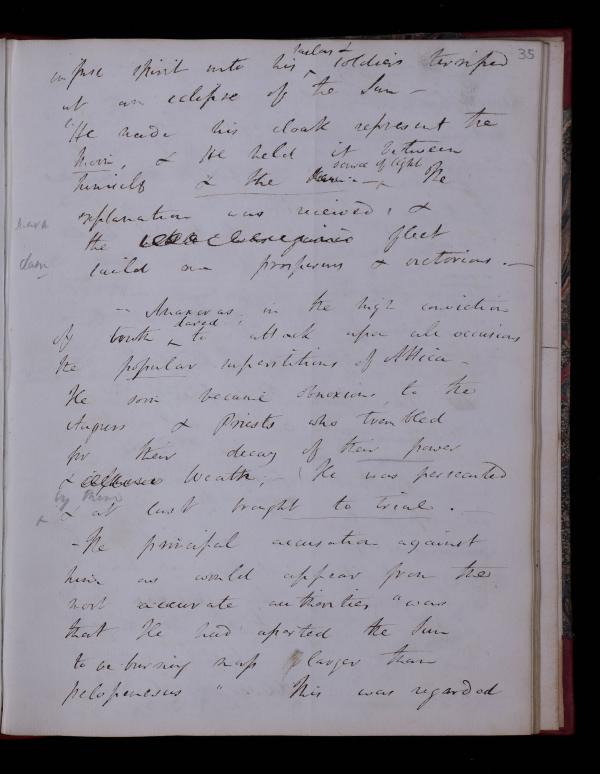 35
infuse spirit into his sailors & soldiers terrified
at an eclipse of the Sun -
"He made his cloak represent the
Moon, & He held it between
himself & the source of light. The
explanation was received, & 
the fleet
saild on prosperous & victorious. -
- Anaxoras, in the high conviction
of truth dared to attack upon all occasions
the popular superstitions of Attica -
He soon became obnoxious to the
Augurs & Priests who trembled
for their decay of their power
& Wealth; - He was persecuted
by them
& at last brought to trial. -
- The principal accusation against
him as would appear from the
most accurate authorities "was
that He had aserted the Sun
to be burning mass larger than
peloponesus " This was regarded